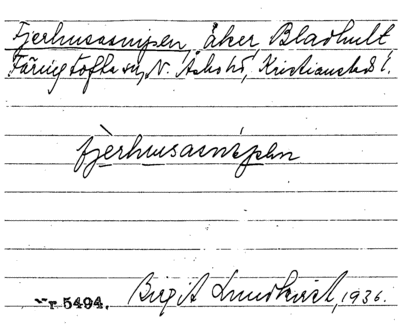 Fjerhusasnipen, åker, Bladhult,
Färingtofta sn, N. Åsbo hd, Kristianstads l.
fjerhusasnipen
Nr 5494. Birgit Lundkvist, 1936.